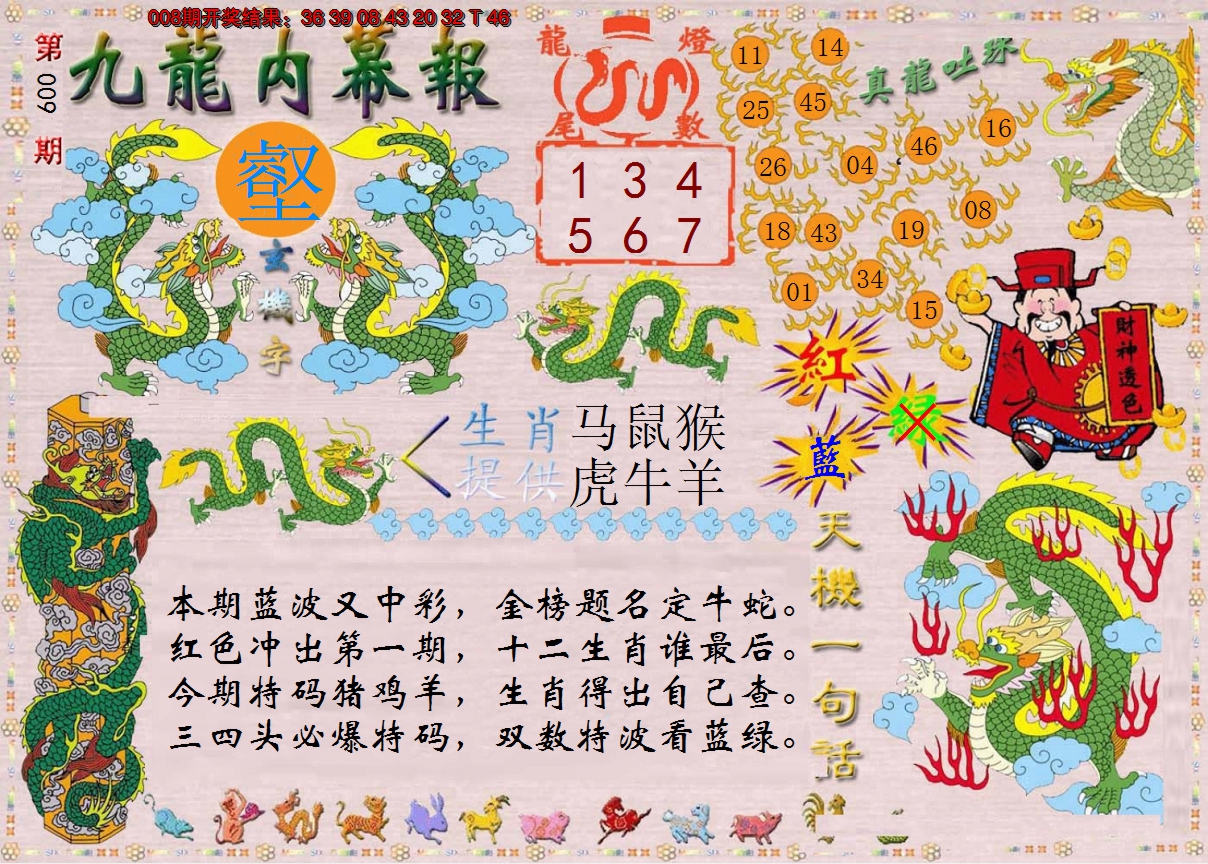 008期开奖结果：36 39 08 43 20 32 T 46
第
009
期
九龍内幕報
龍燈
尾數
1 3 4
5 6 7
壑
玄
機
字
真龍吐珠
11
14
25
45
46
16
26
04
08
18
43
19
34
01
15
財神透色
紅
绿
藍
生肖
提供
马鼠猴
虎牛羊
本期蓝波又中彩，金榜题名定牛蛇。
红色冲出第一期，十二生肖谁最后。
今期特码猪鸡羊，生肖得出自己查。
三四头必爆特码，双数特波看蓝绿。
天
機
一
句
話